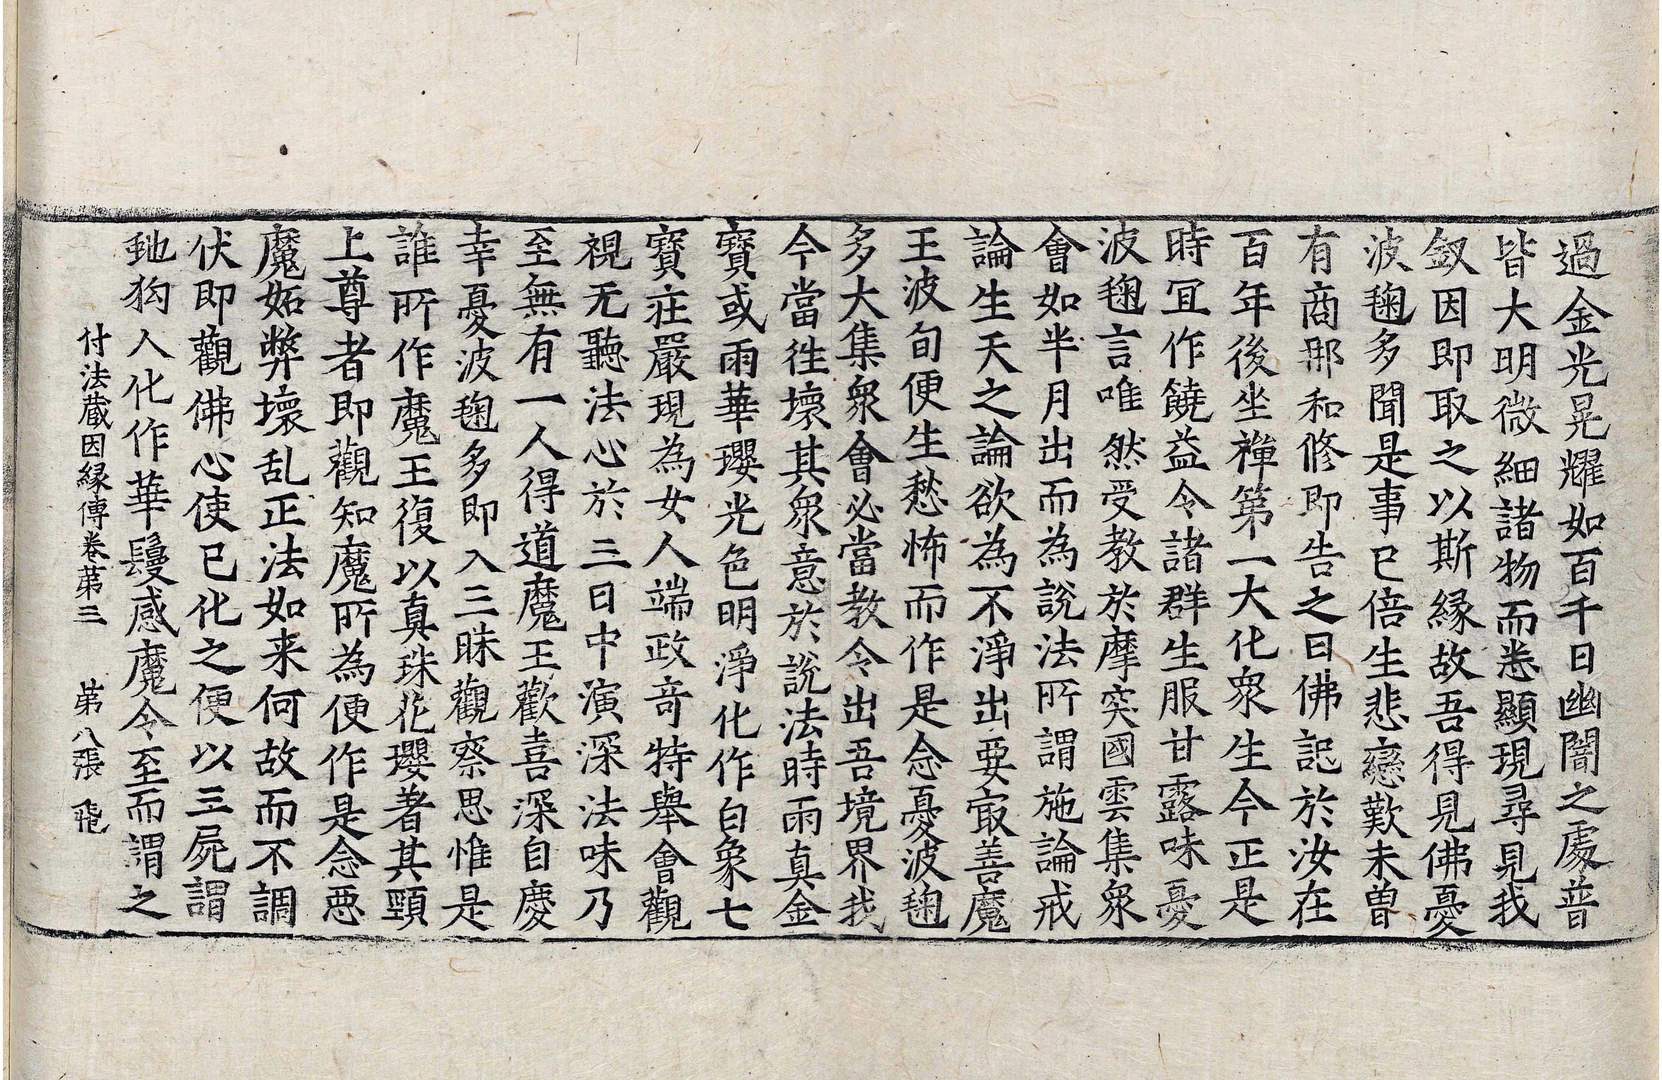 過金光晃耀如百千日幽闇之處普
皆大明微細諸物而悉顯現尋見我
釵因即取之以斯緣故吾得見佛憂
波毱多聞是事已倍生悲戀歎未曾
有商那和修即告之曰佛記於汝在
百年後坐禪第一大化衆生今正是
時冝作饒益令諸群生服甘露味憂
波毱言唯然受教於摩突國雲集衆
會如半月出而為說法所謂施論戒
論生天之論欲為不淨出要㝡善魔
王波旬便生愁怖而作是念憂波毱
多大集衆會必當教令出吾境界我
今當往壞其衆意於說法時雨真金
寶或雨華瓔光色明淨化作白象七
寶莊嚴現為女人端政竒特舉會觀
視无聽法心於三日中演深法味乃
至無有一人得道魔王歡喜深自慶
幸憂波毱多即入三昧觀察思惟是
誰所作魔王復以真珠花瓔著其頸
上尊者即觀知魔所為便作是念惡
魔妬弊壞乱正法如来何故而不調
伏即觀佛心使已化之便以三屍謂
虵狗人化作華鬘感魔令至而謂之
付法藏因緣傳卷第三 第八張 飛